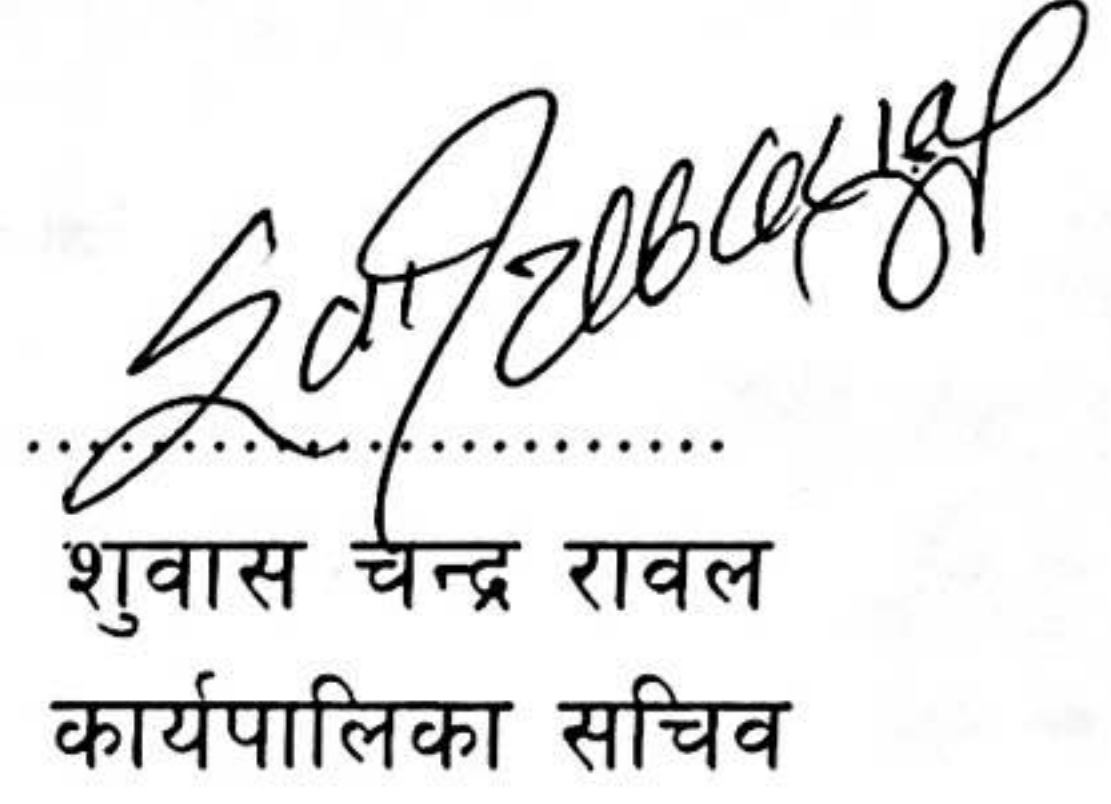 ........................
शुवास चन्द्र रावल
कार्यपालिका सचिव